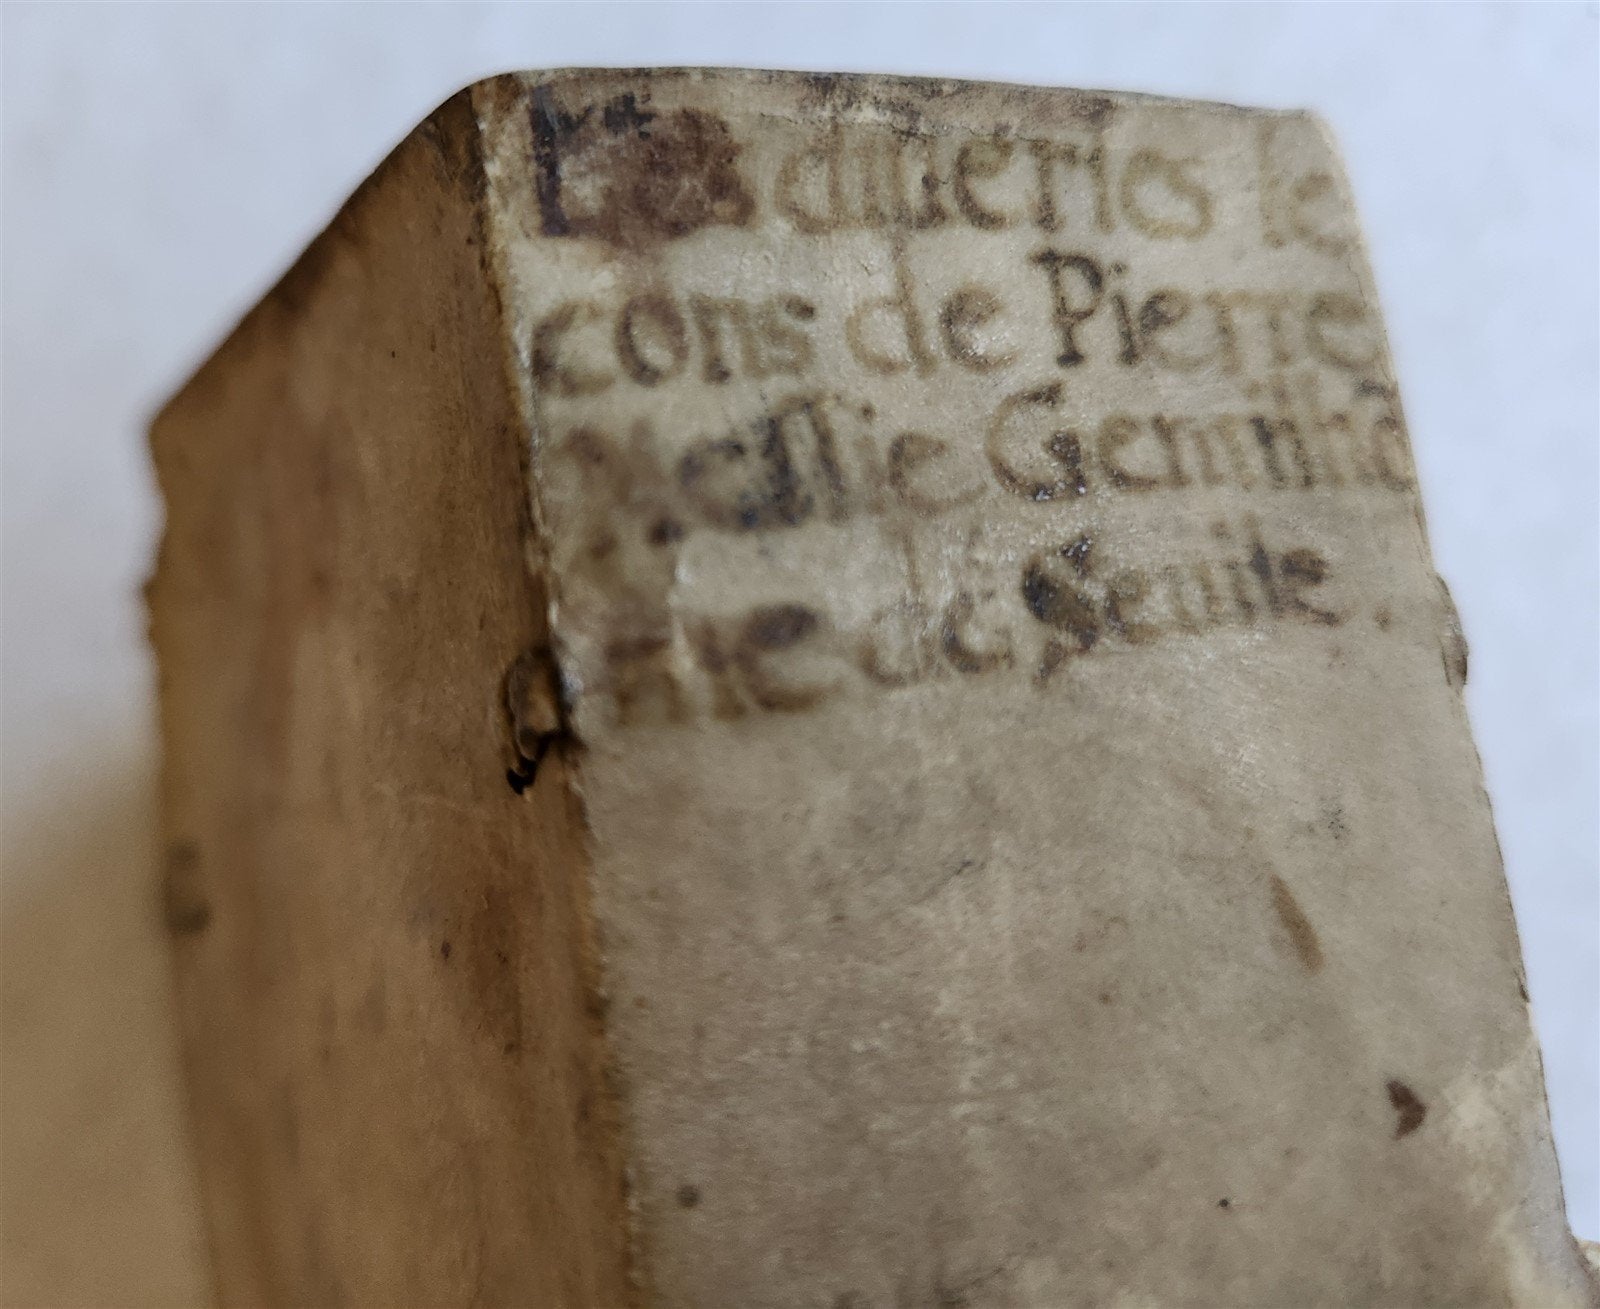 Les diuerſes le
cons de Pierre
Meſſie Gentilhõ
me de Seuile.